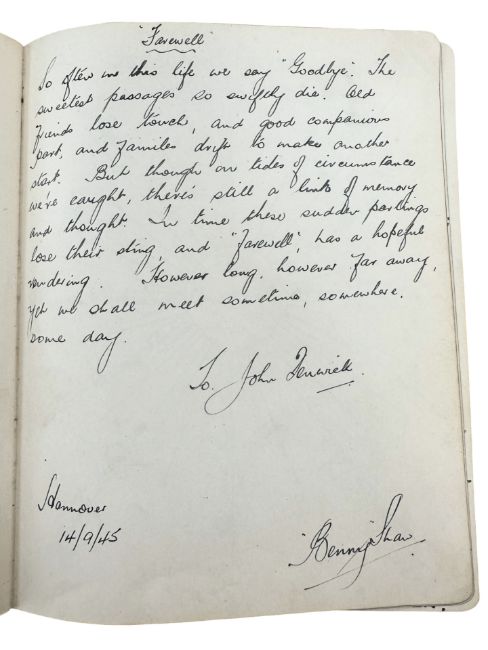 "Farewell"
So often in this life we say "Goodbye". The
sweetest passages so swiftly die. Old
friends lose touch, and good companions
part, and families drift to make another
start. But though on tides of circumstance
we're caught, there's still a link of memory
and thought. In time these sudden partings
lose their sting, and "Farewell", has a hopeful
rendering. However long, however far away,
yet we shall meet sometime, somewhere,
some day.
To. John Fenwick
Hannover
14/9/45
"Benny" Shaw